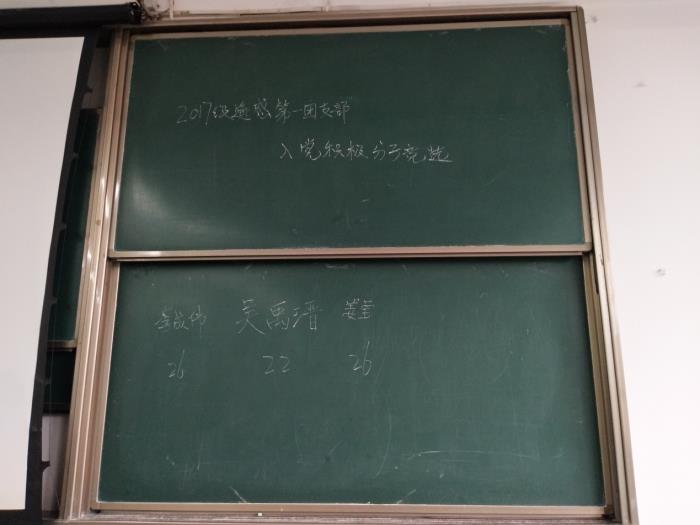 2017级遥感第一团支部
入党积极分子竞选
吴禹瑨
26 22 26